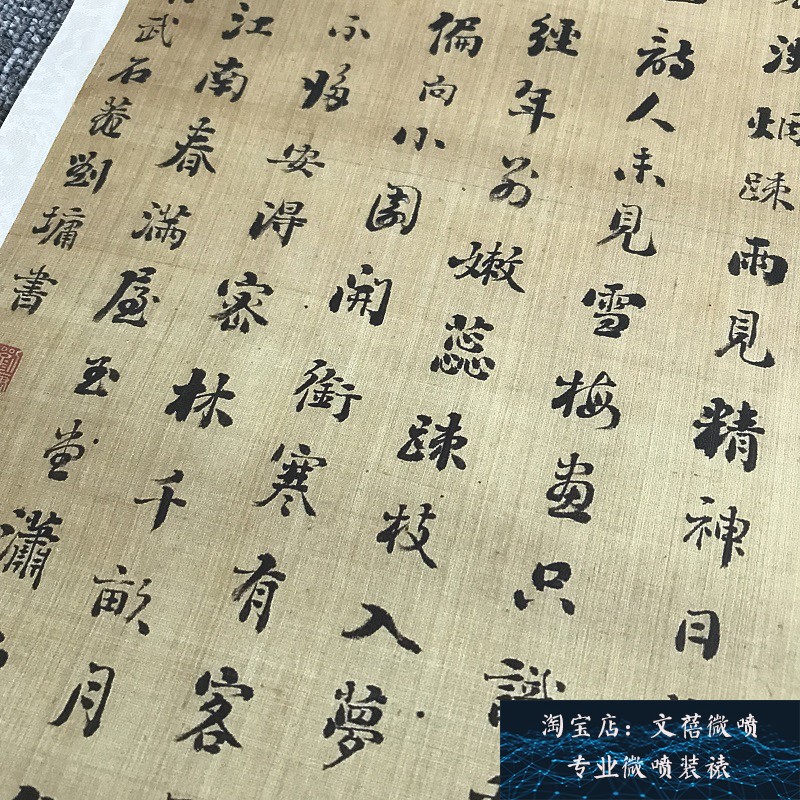 淡烟疎雨見精神日
詩人未見雪梅畫只識
經年前嫩蕊疎枝入夢
偏向小園開銜寒有客
不安得密林千畝月
江南春滿屋玉堂瀟
武石菴劉墉書
淘宝店：文蓓微喷
专业微喷装裱